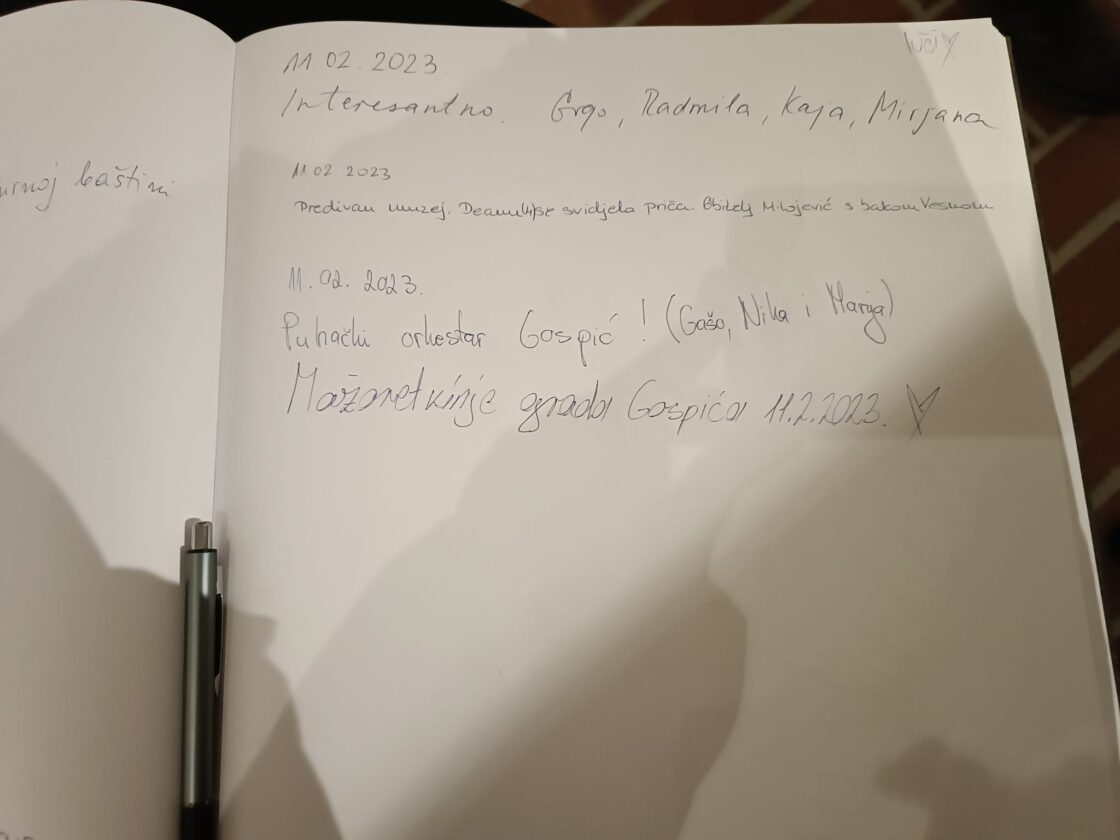 urnoj baštini
11.02.2023.
Interesantno. Grgo, Radmila, Kaja, Mirjana
11.02.2023
Predivan muzej. svidjela priča. Obitelj Milojević s bakom Vesnom
11.02.2023.
Puhački orkestar Gospić! (Gašo, Nika i Marija)
Mažoretkinje grada Gospića 11.2.2023.